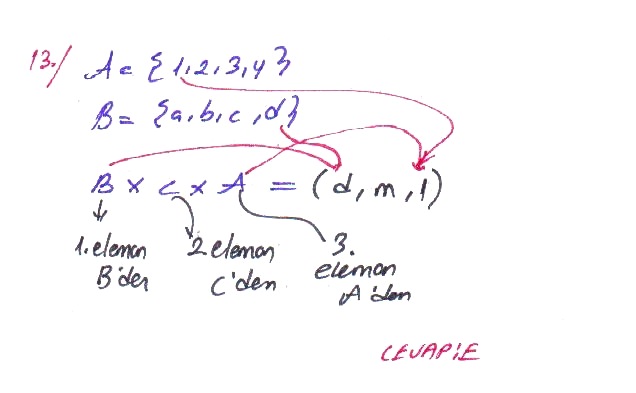 13./ A = {1,2,3,4}
B = {a,b,c,d}
B x C x A = (d,m,1)
1.eleman 2.eleman 3.
B'den C'den eleman
A'dan
CEVAP:E